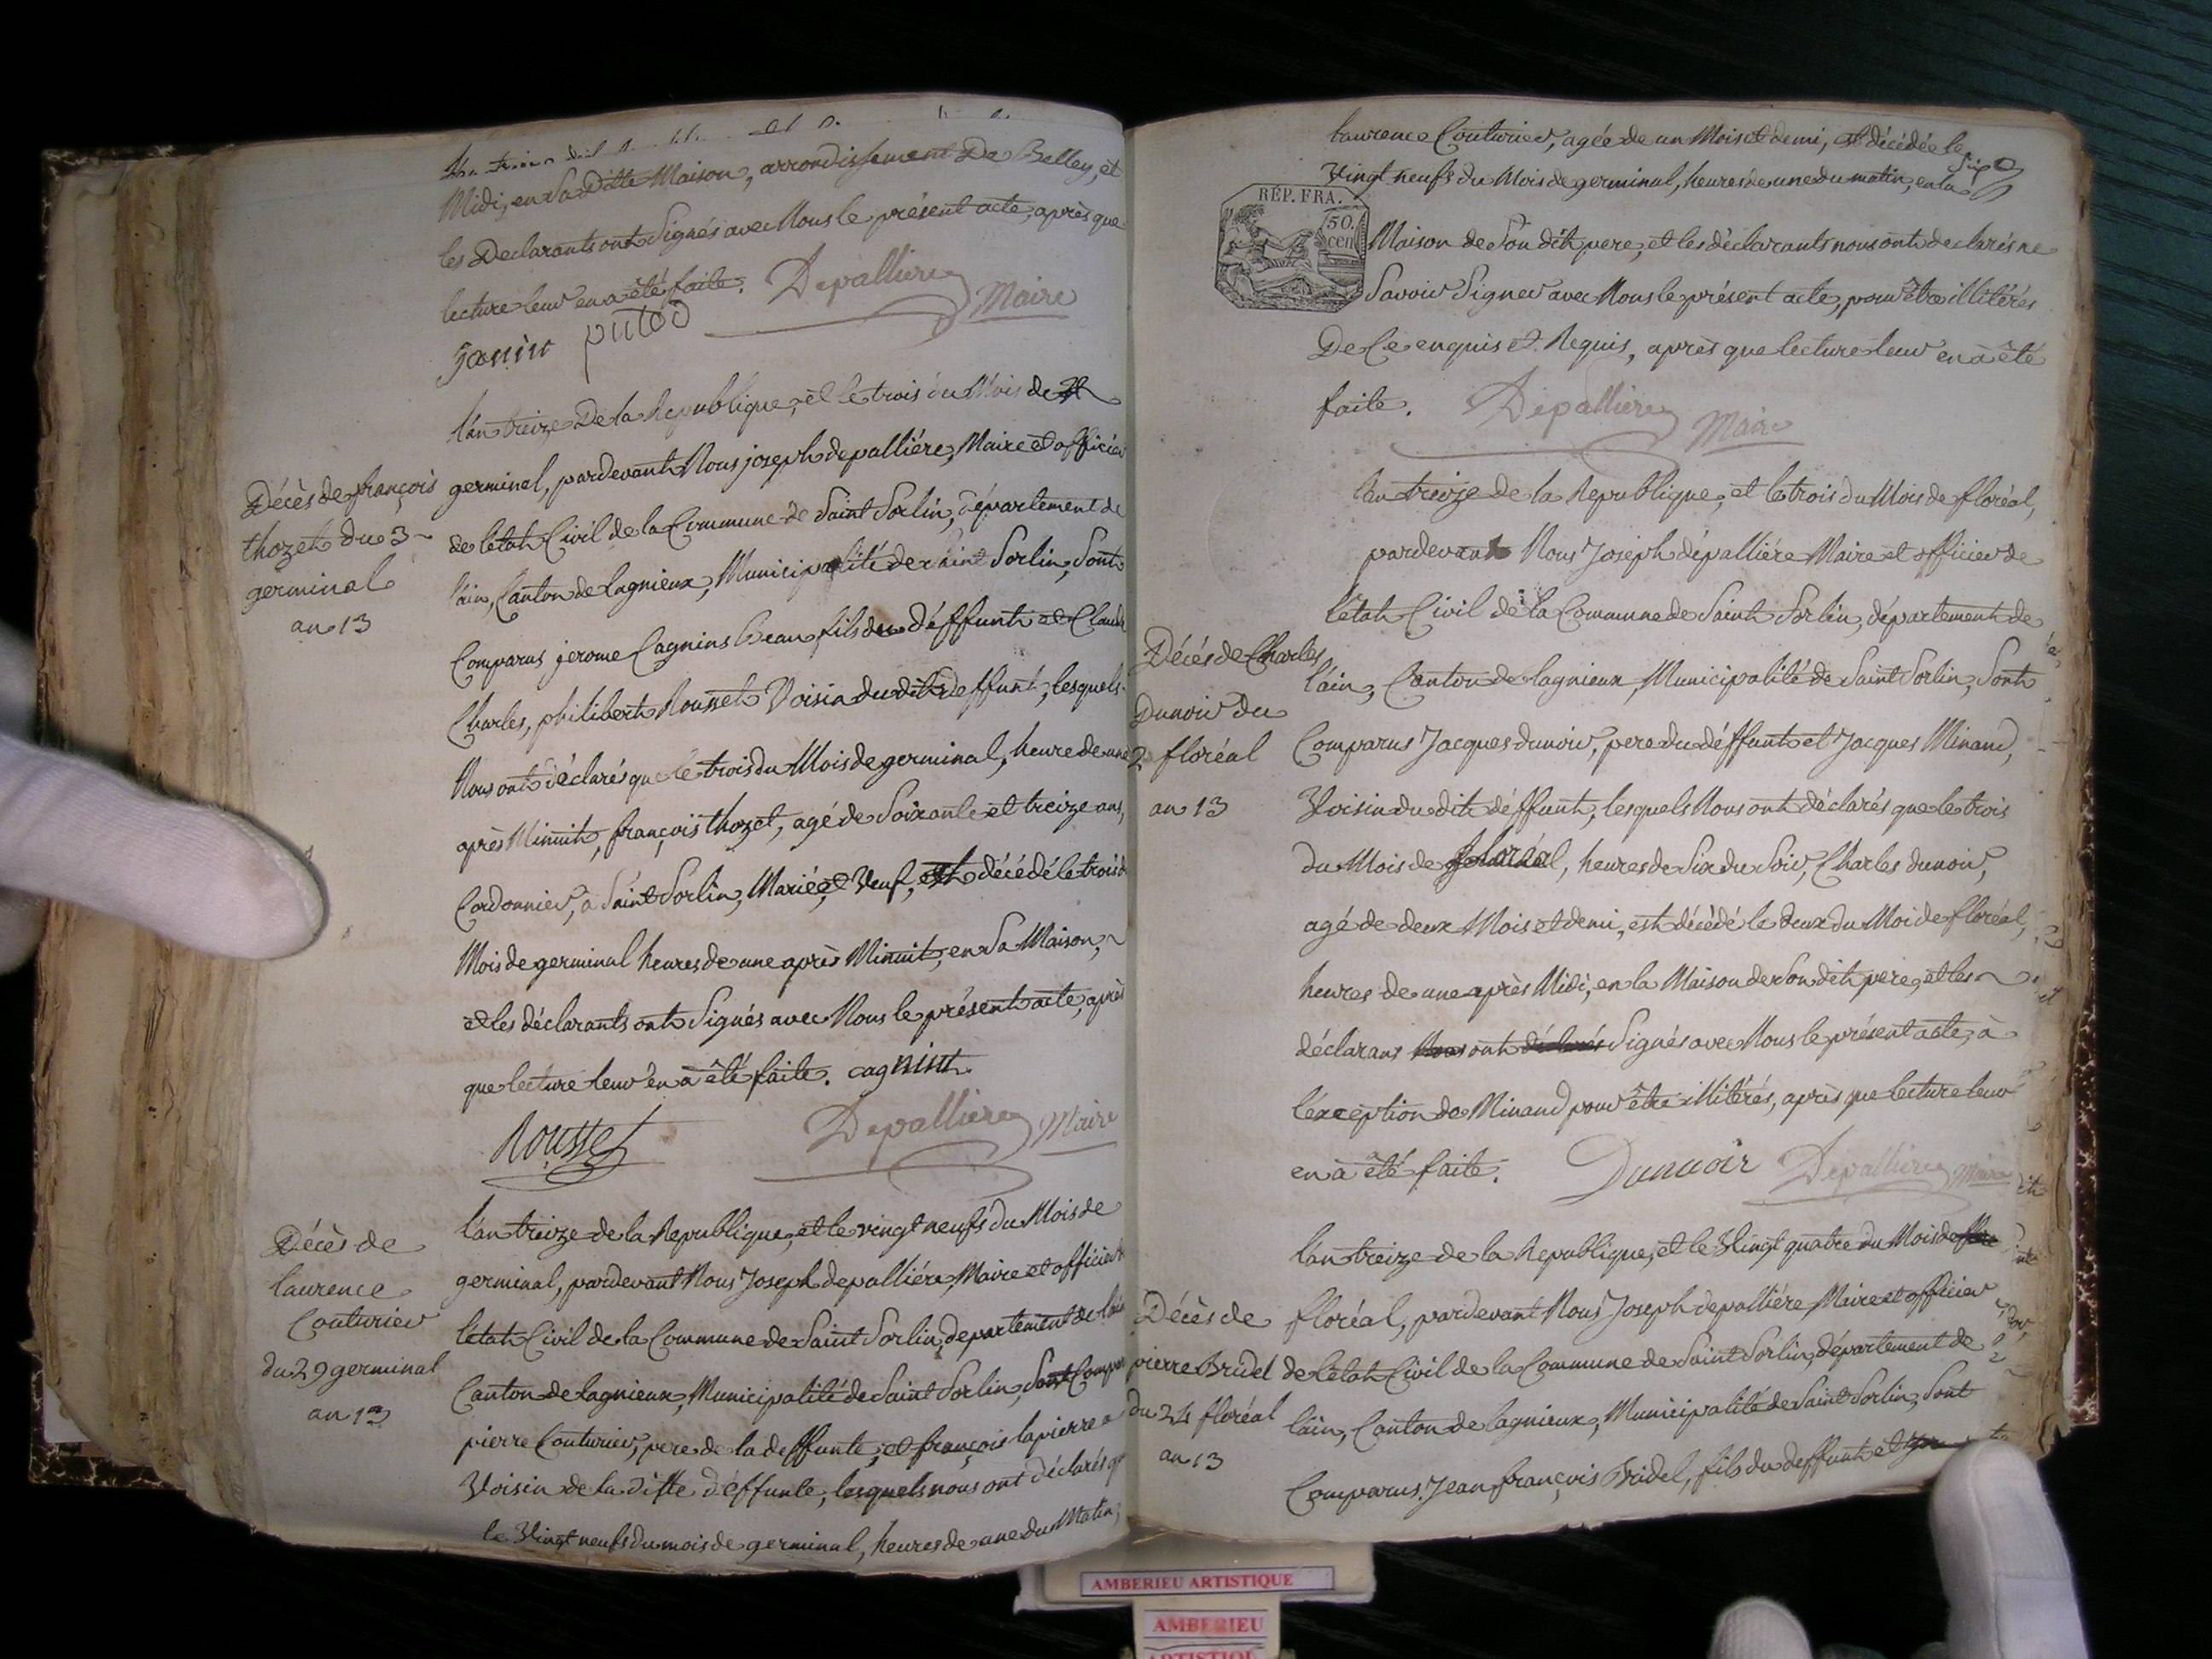 Midi, en Sa Ditte Maison, arrondissement De Belley, et
les Declarants ont Signés avec Nous le présent acte, après que
lecture leur en a été faite. Depalliere Maire
Janin putod
Décès de françois
thozet du 3
germinal
an 13
l'an treize De la Republique, et le trois du Mois de
germinal, pardevant Nous joseph depalliére, Maire et officier
de l'etat Civil de la Commune de Saint Sorlin, département de
l'ain, Canton de lagnieux, Municipalité de Saint Sorlin, Sont
Comparus jerome Cagnin beau fils du déffunt et Claude
Charles, philibert Rousset Voisin du dit deffunt, lesquels
Nous ont déclarés que le trois du Mois de germinal, heure de une
après Minuit, françois thozet, agé de Soixante et treize ans,
Cordonnier, a Saint Sorlin, Marié, et Veuf, est décédé le trois du
Mois de germinal heures de une après Minuit, en Sa Maison,
et les déclarants ont Signés avec Nous le présent acte, après
que lecture leur en à été faite. cagnin
Rousset Depalliere Maire
Décès de
laurence
Couturier
du 29 germinal
an 13
l'an treize de la Republique, et le vingt neufs du Mois de
germinal, pardevant Nous Joseph depalliére, Maire et officier
l'etat Civil de la Commune de Saint Sorlin, departement de l'ain
Canton de lagnieux, Municipalité de Saint Sorlin, Sont Comparus
pierre Couturier, pere de la deffunte, et françois lapierre
Voisin de la ditte déffunte, lesquels nous ont déclarés que
le Vingt neufs du mois de germinal, heures de une du Matin,
laurence Couturier, agée de un Mois et demi, est décédée le
Vingt neufs du Mois de germinal, heures de une du matin, en la
REP. FRA.
50.
cen
Maison de Son dit pere, et les déclarants nous ont declarés ne
Savoir Signer avec Nous le présent acte, pour être illitérés
De Ce enquis et Requis, après que lecture leur en à été
faite. Depalliere Maire
l'an treize de la Republique, et le trois du Mois de floréal,
pardevant Nous Joseph dépalliére Maire et officier de
l'etat Civil de la Commune de Saint Sorlin, département de
Décés de Charles
Dunoir du
2 floréal
an 13
l'ain, Canton de lagnieux, Municipalité de Saint Sorlin, Sont
Comparus Jacques dunoir, pere du déffunt et Jacques Minand,
Voisin du dit déffunt, lesquels Nous ont déclarés que le trois
du Mois de floréal, heures de Six du Soir, Charles dunoir,
agé de deux Mois et demi, est décédé le deux du Moi de floréal,
heures de une après Midi, en la Maison de Son dit pere, et les
déclarans Nous ont déclarés Signés avec Nous le présent acte, à
l'exception de Minand pour être illitérés, après que lecture leur
en à été faite. Dunuoir Depalliere Maire
Décès de
pierre Bridel
du 24 floréal
an 13
l'an treize de la Republique, et le Vingt quatre du Mois de
floréal, pardevant Nous Joseph depalliére Maire et officier
de l'etat Civil de la Commune de Saint Sorlin, département de
l'ain, Canton de lagnieux, Municipalité de Saint Sorlin, Sont
Comparus Jean françois Bridel, fils du deffunt et
AMBERIEU ARTISTIQUE
AMBERIEU
ARTISTIQUE